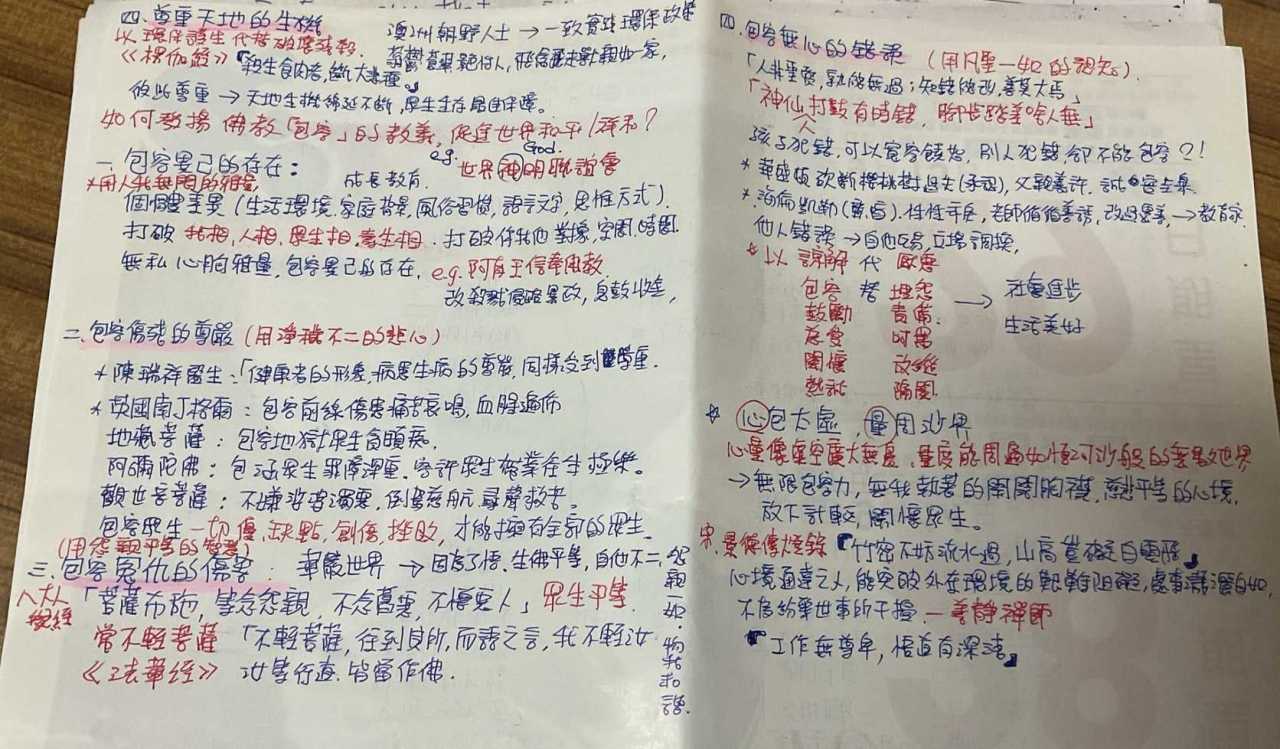 四.尊重天地的生機
澳州朝野人士→一致實踐環保政策
以環保護生代替破壞殘殺.
《楞伽經》「殺生食肉者,斷大悲種」
彼此尊重→天地生機綿延不斷,眾生生存居住保障.
如何發揚佛教「包容」的教義,促進世界和平/祥和?
God.
一.包容異己的存在: e.g. 世界神明聯誼會
*用人我無間的雅量 成長教育.
個體差異(生活環境.家庭背景.風俗習慣,語言文字,思惟方式).
打破 我相,人相,眾生相.壽者相.打破你我他對象,空間,時間.
無私心胸雅量,包容異己的存在. e.g.阿育王信奉佛教
改殺戮侵略異政,息鼓收兵,
二.包容傷殘的尊嚴(用淨穢不二的悲心)
*陳瑞祥醫生:「健康者的形态,病患生病的尊嚴,同樣受到尊重.
*英國南丁格爾:包容前線傷患痛苦哀鳴,血腥遍佈
地藏菩薩:包容地獄眾生貪瞋痴.
阿彌陀佛:包涵眾生罪障深重.容許眾生帶業往生極樂.
觀世音菩薩:不嫌娑婆濁惡,倒駕慈航.尋聲救苦.
包容眾生一切優.缺點,創傷,挫敗,才能擁有全部的眾生.
(用怨親平等的智慧)
三.包容冤仇的傷害: 華嚴世界→因為了悟.生佛平等,自他不二,怨親一如.物我和諧.
八大人覺經 「菩薩布施,等念怨親,不念舊惡,不憎惡人」眾生平等.
常不輕菩薩「不輕菩薩,往到其所,而語之言,我不輕汝
《法華經》 汝等行道.皆當作佛.
四.包容無心的錯誤 (用凡聖一如的認知).
「人非聖賢,孰能無過;知錯能改,善莫大焉」
「神仙打鼓有時錯,腳步踏差啥人無」
人
孩子犯錯,可以寬容饒恕,別人犯錯,卻不能包容?!
*華盛頓砍斷櫻桃樹過失(承認),父親嘉許.誠實.
*海倫凱勒(聾盲).性情乖戾,老師循循善誘,改過遷善,→教育家
他人錯誤→自他互易,立場調換,
*以 諒解 代 厭惡
包容 替 埋怨
鼓勵 責備.
慈愛 呵罵
關懷 放縱
熱誠 隔閡
→ 社會進步
生活美好
* 心包太虛 量周沙界
心量像虛空廣大無邊.量度能周遍如恆河沙般的無數世界
→無限包容力,無我執著的開闊胸襟,怨親平等的心境,
放下計較,關懷眾生.
宋.景德傳燈錄『竹密不妨流水過,山高豈礙白雲飛』
心境通達之人,能突破外在環境的艱難阻礙,處事瀟灑自如,
不為紛華世事所干擾—善靜禪師
『工作無尊卑,悟道有深淺』